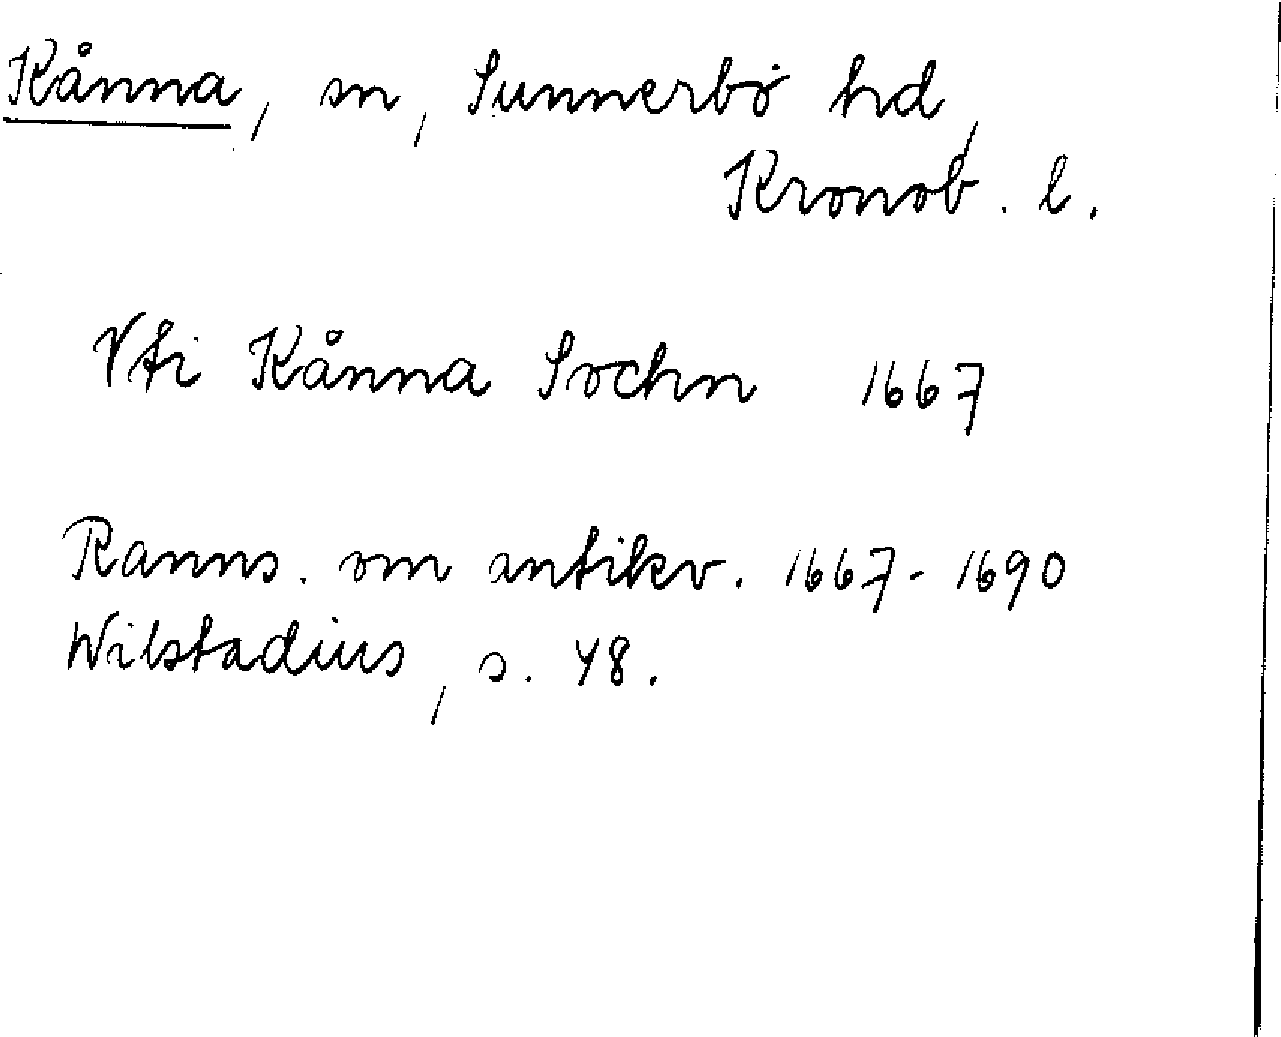 Kånna, sn, Sunnerbö hd,
Kronob. l.
Vti Kånna Sochn 1667
Ranns. om antikv. 1667-1690
Wilstadius, s. 48.